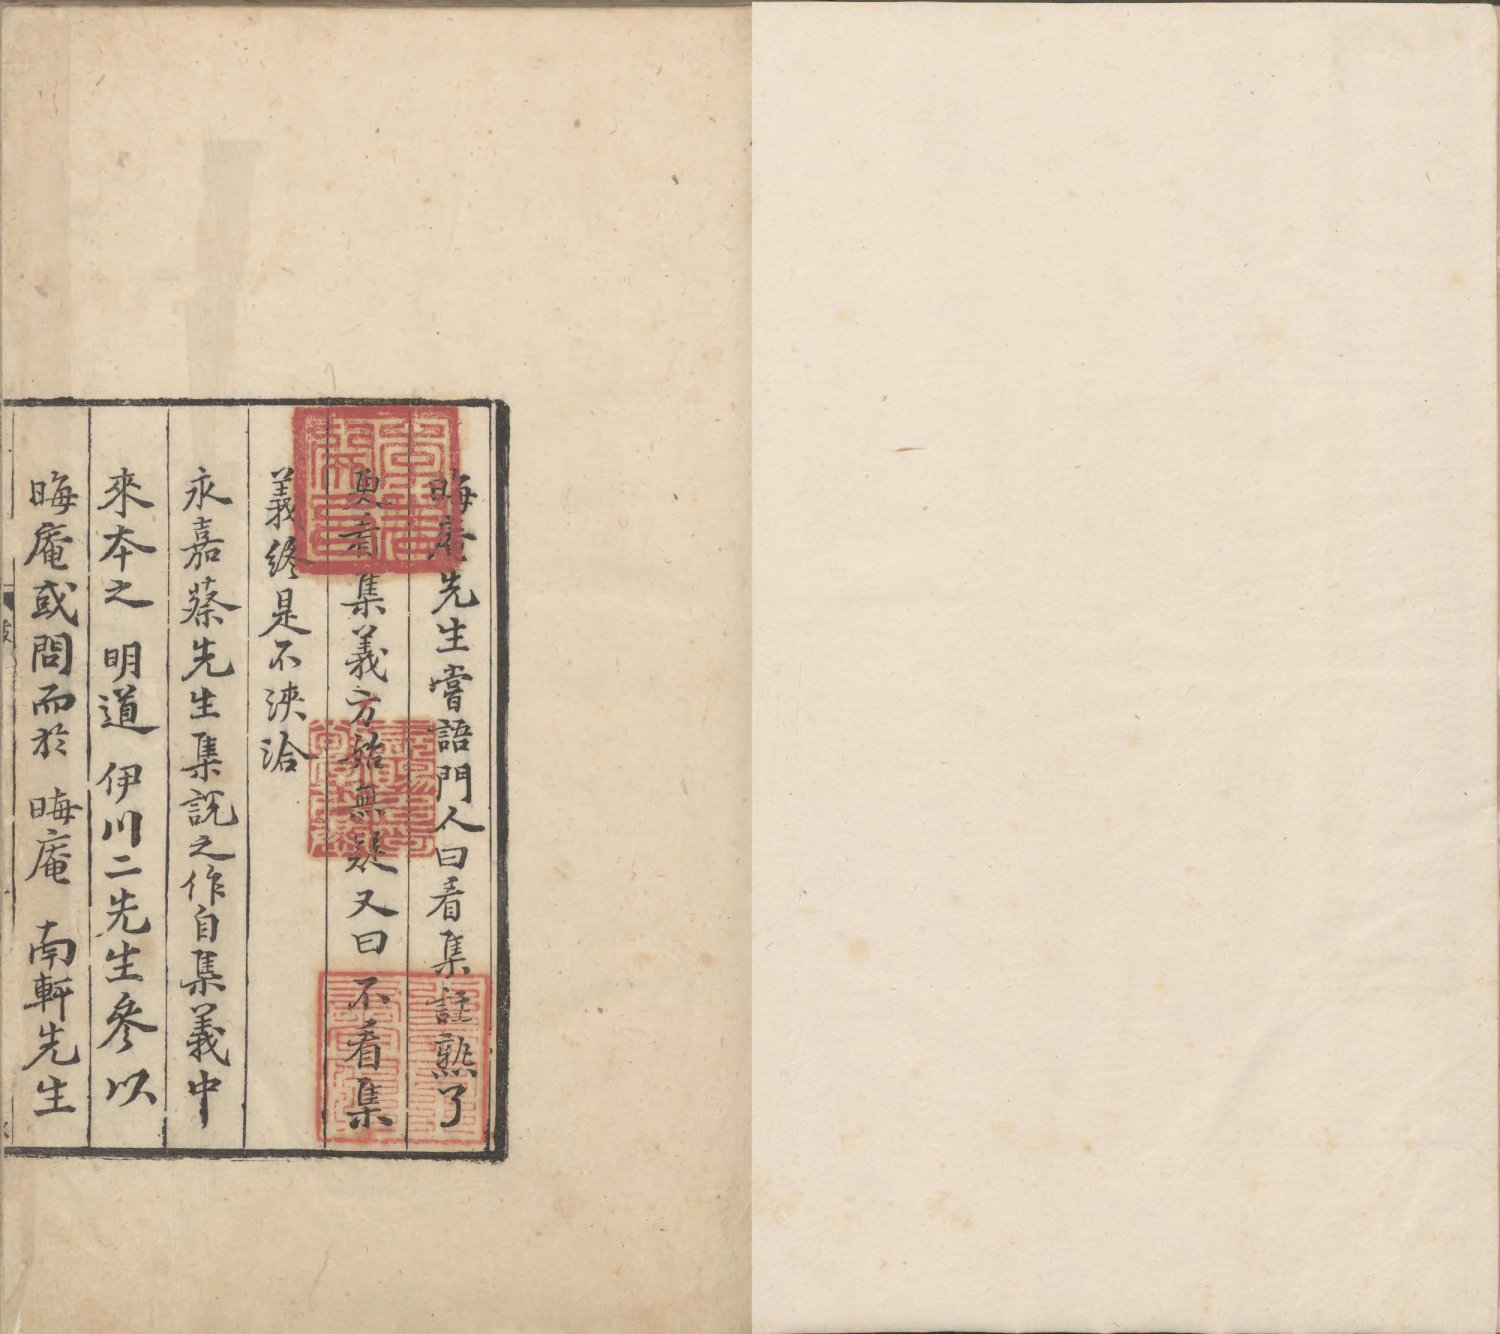 晦庵先生嘗語門人曰看集註熟了
更看集義方始無疑又曰不看集
義終是不浹洽
永嘉蔡先生集說之作自集義中
來本之 明道 伊川二先生參以
晦庵或問而於 晦庵 南軒先生